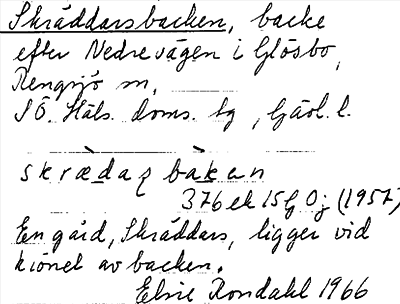 Skräddarsbacken, backe
efter Nedre vägen i Glösbo,
Rengsjö sn,
SÖ. Häls. doms. tg, Gävl. l.
skrædaʂ bàken
376 ek 15 g Oj (1957)
En gård, Skräddars, ligger vid
krönet av backen.
Elsie Rondahl 1966